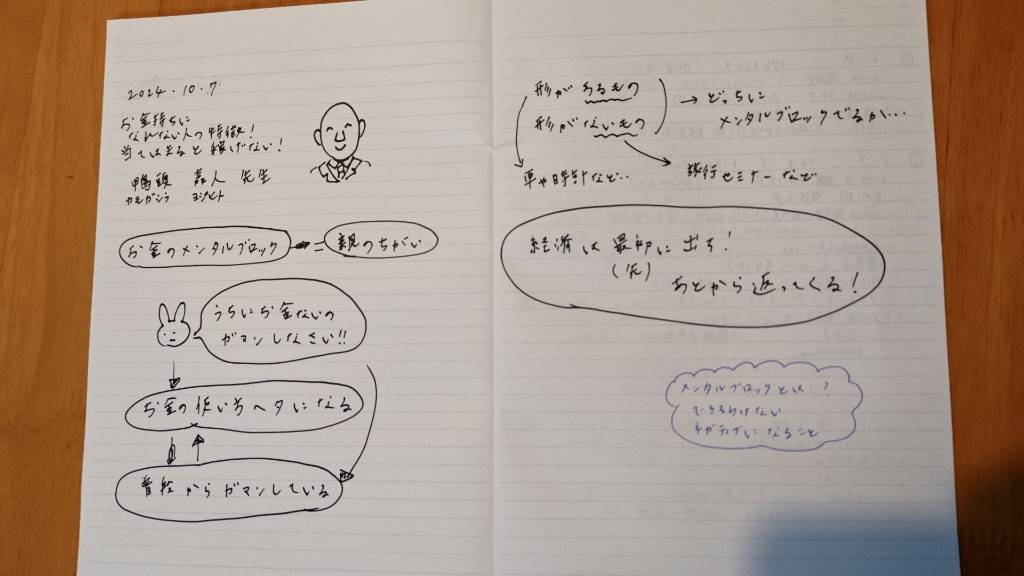 2024.10.7
お金持ちに
なれない人の特徴!
当てはまると稼げない!
鴨頭 嘉人 先生
カモガシラ ヨシヒト
お金のメンタルブロック = 親のちがい
うちはお金ないの
ガマンしなさい!!
お金の使い方ヘタになる
普段からガマンしている
形があるもの
形がないもの
→ どっちに
メンタルブロックでるか…
車や時計など…
旅行セミナーなど
経済は最初に出す!
(先)
あとから返ってくる!
メンタルブロックとは…?
できるわけない
ネガティブになること